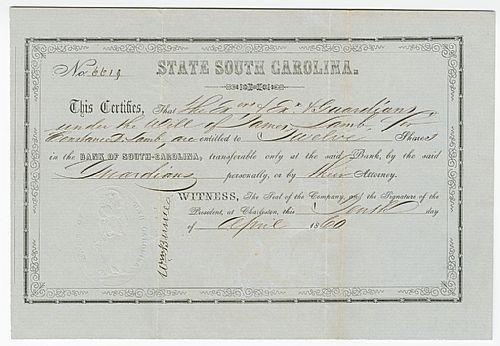 No. 6619
STATE SOUTH CAROLINA.
This Certifies, That The Exors & Exx & Guardians
under the Will of James Lamb, for
Constance Lamb, are entitled to Twelve Shares
in the BANK OF SOUTH-CAROLINA, transferable only at the said Bank, by the said
Guardians personally, or by their Attorney.
WITNESS, The Seal of the Company, and the Signature of the
President, at Charleston, this Tenth day
of April 1860
Wm Birnie